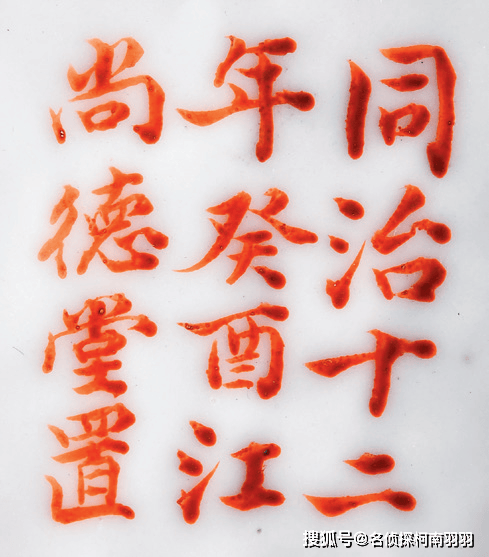 同治十二
年癸酉江
尚德堂置
搜狐号@名侦探柯南羽羽